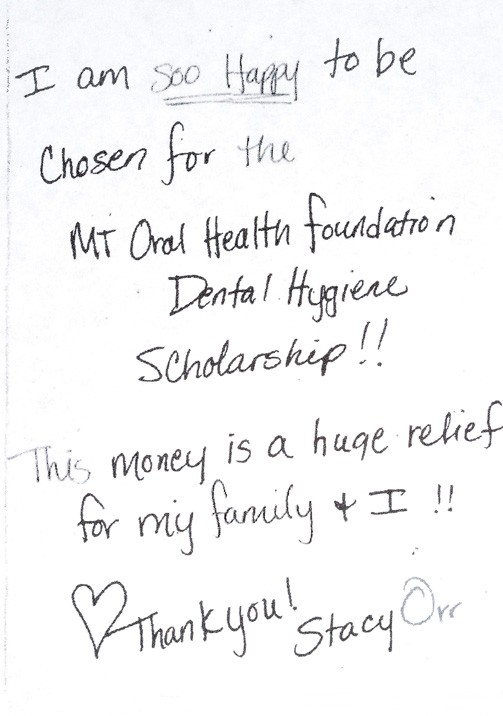 I am soo Happy to be
Chosen for the
MT Oral Health Foundation
Dental Hygiene
Scholarship!!
This money is a huge relief
for my family + I !!
♡ Thank you! Stacy Orr